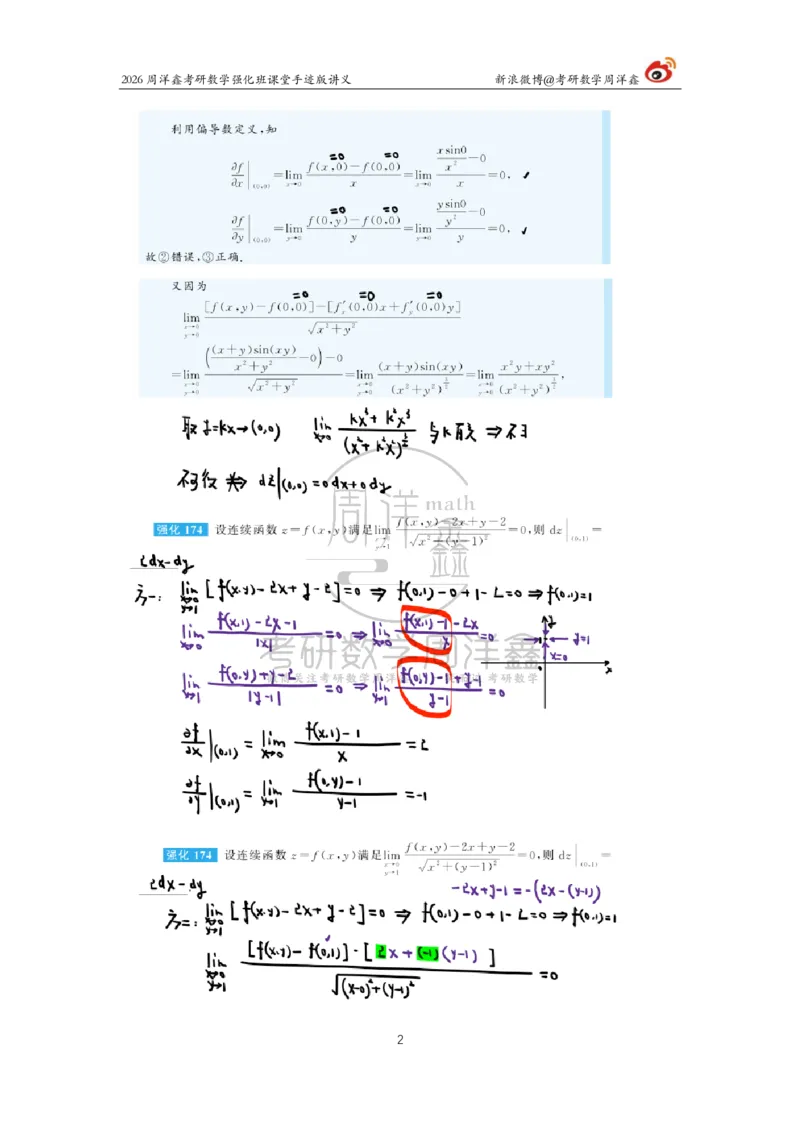 2026 周洋鑫考研数学强化班课堂手迹版讲义 新浪微博@考研数学周洋鑫
利用偏导数定义,知
=0 =0
∂f/∂x|(0,0) = lim x→0 (f(x,0)-f(0,0))/x = lim x→0 (x sin0/x² - 0)/x = 0, ✓
=0 =0
∂f/∂y|(0,0) = lim y→0 (f(0,y)-f(0,0))/y = lim y→0 (y sin0/y² - 0)/y = 0, ✓
故②错误,③正确.
又因为
=0 =0 =0
lim x→0 y→0 ([f(x,y)-f(0,0)]-[f′x(0,0)x+f′y(0,0)y])/√(x²+y²)
= lim x→0 y→0 (((x+y)sin(xy)/(x²+y²) - 0) - 0)/√(x²+y²) = lim x→0 y→0 (x+y)sin(xy)/(x²+y²)^(3/2) = lim x→0 y→0 (x²y+xy²)/(x²+y²)^(3/2),
取 y=kx→(0,0) lim x→0 (kx³+k²x³)/(x²+k²x²)^(3/2) 与k有关 ⇒不∃
不可微 dz|(0,0) = 0dx+0dy
周洋鑫 math
强化 174 设连续函数 z=f(x,y)满足 lim x→0 y→1 (f(x,y)-2x+y-2)/√(x²+(y-1)²) = 0,则 dz|(0,1) =
2dx-dy
方一: lim x→0 y→1 [f(x,y)-2x+y-2]=0 ⇒ f(0,1)-0+1-2=0 ⇒ f(0,1)=1
lim x→0 (f(x,1)-2x-1)/|x| = 0 ⇒ lim x→0 (f(x,1)-1-2x)/x = 0
y=1
x=0
y x 0 1
考研数学周洋鑫
lim y→1 (f(0,y)+y-2)/|y-1| = 0 ⇒ lim y→1 (f(0,y)-1+y-1)/(y-1) = 0
∂f/∂x|(0,1) = lim x→0 (f(x,1)-1)/x = 2
∂f/∂y|(0,1) = lim y→1 (f(0,y)-1)/(y-1) = -1
强化 174 设连续函数 z=f(x,y)满足 lim x→0 y→1 (f(x,y)-2x+y-2)/√(x²+(y-1)²) = 0,则 dz|(0,1) =
2dx-dy
-2x+y-1=-(2x-(y-1))
方二: lim x→0 y→1 [f(x,y)-2x+y-2]=0 ⇒ f(0,1)-0+1-2=0 ⇒ f(0,1)=1
lim x→0 y→1 ([f(x,y)-f(0,1)]-[2x+(-1)(y-1)])/√((x-0)²+(y-1)²) = 0
2